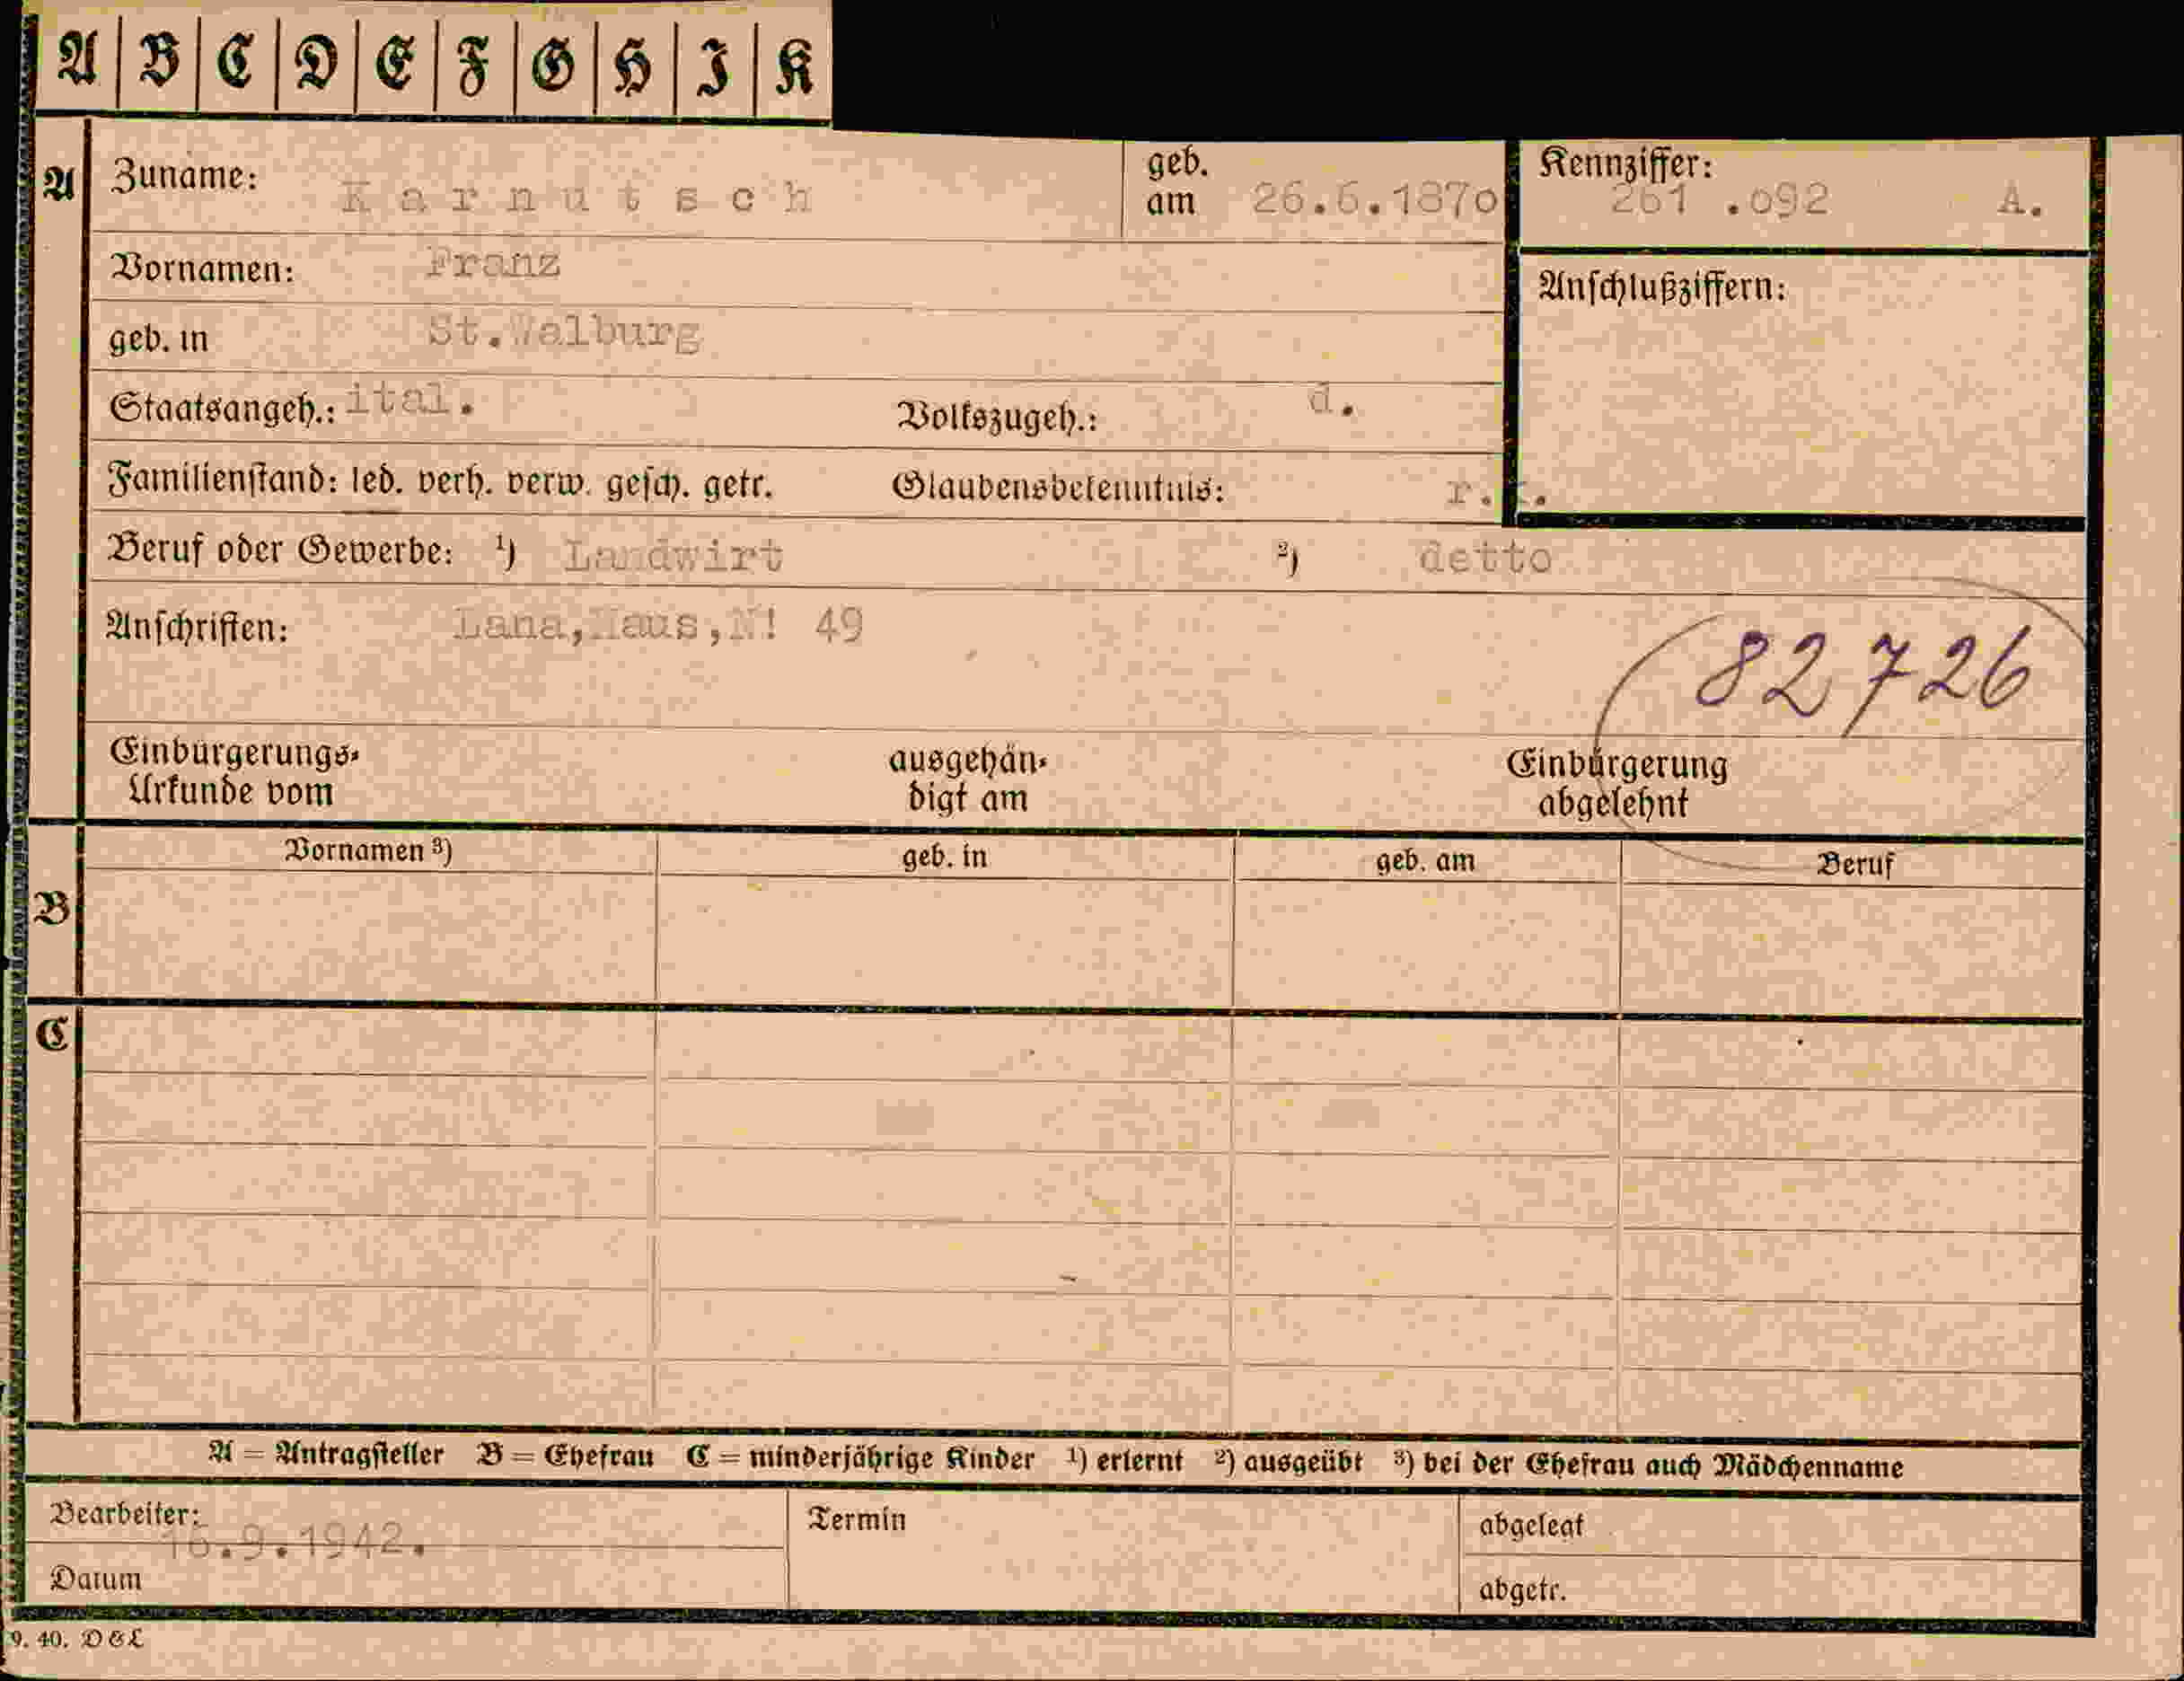 A B C D E F G H I K
A Zuname: Karnutsch geb. am 26.6.1870 Kennziffer: 261 .092 A.
Vornamen: Franz
Anschlußziffern:
geb. in St.Walburg
Staatsangeh.: ital. Volkszugeh.: d.
Familienstand: led. verh. verw. gesch. getr. Glaubensbekenntnis: r.k.
Beruf oder Gewerbe: 1) Landwirt 2) detto
Anschriften: Lana,Maus,N! 49
82726
Einbürgerungs-
Urkunde vom
ausgehän-
digt am
Einbürgerung
abgelehnt
B Vornamen 3) geb. in geb. am Beruf
C
A = Antragsteller B = Ehefrau C = minderjährige Kinder 1) erlernt 2) ausgeübt 3) bei der Ehefrau auch Mädchenname
Bearbeiter: Termin abgelegt
16.9.1942.
Datum abgetr.
9. 40. D&L